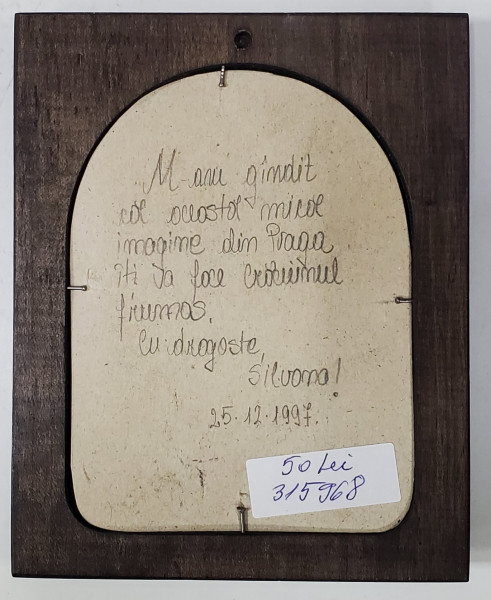 M-am gîndit
că această mică
imagine din Praga
îți va face crăciunul
frumos.
Cu dragoste,
Silvana!
25.12.1997.
50 Lei
315968